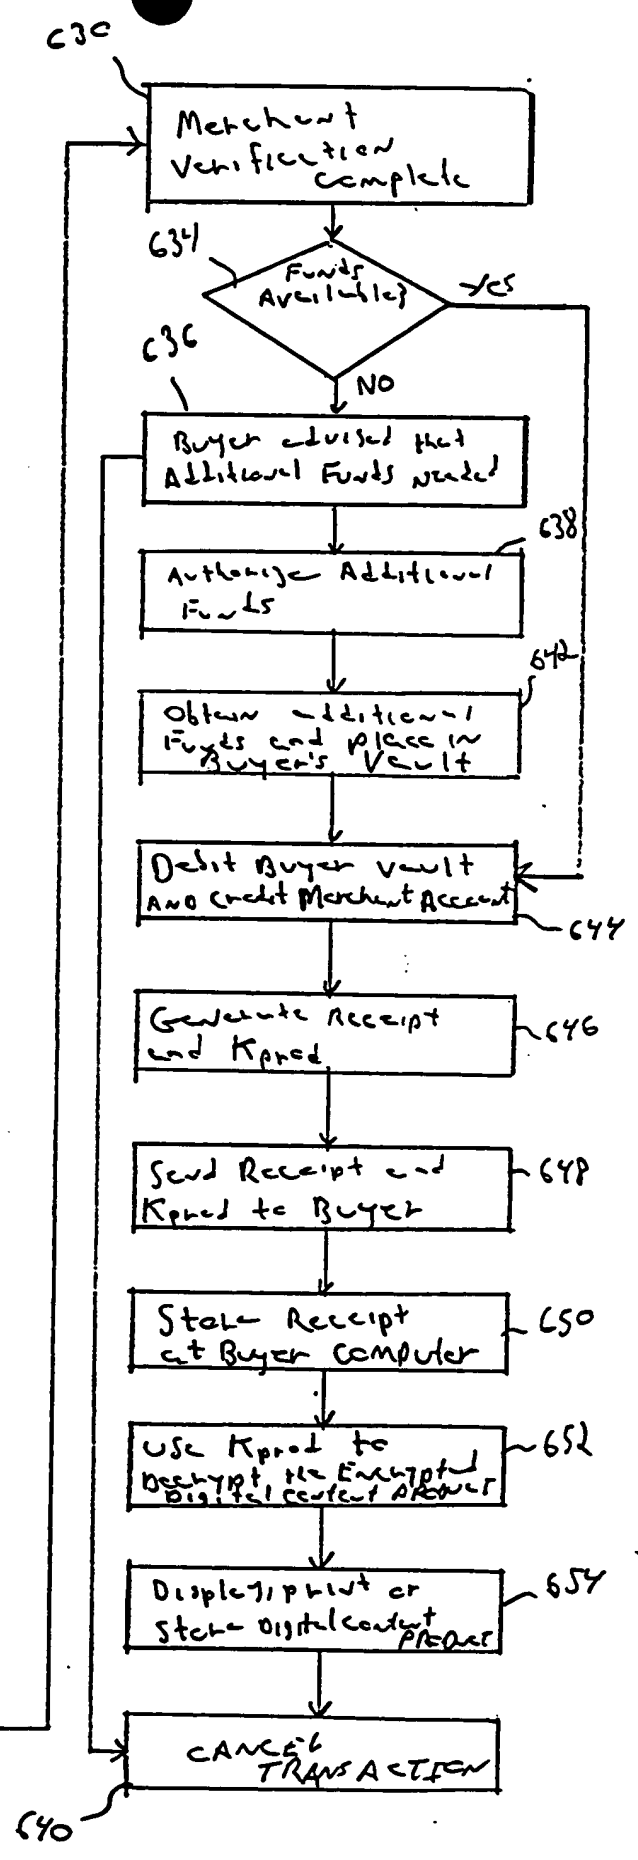 630
Merchant
Verification
complete
634
Funds
Available?
Yes
NO
636
Buyer advised that
Additional Funds needed
638
Authorize Additional
Funds
642
Obtain additional
Funds and place in
Buyer's Vault
Debit Buyer Vault
AND Credit Merchant Account
644
Generate Receipt
and Kprod
646
Send Receipt and
Kprod to Buyer
648
Store Receipt
at Buyer Computer
650
Use Kprod to
Decrypt the Encrypted
Digital content PRODUCT
652
Display, print or
Store Digital Content
PRODUCT
654
CANCEL
TRANSACTION
640